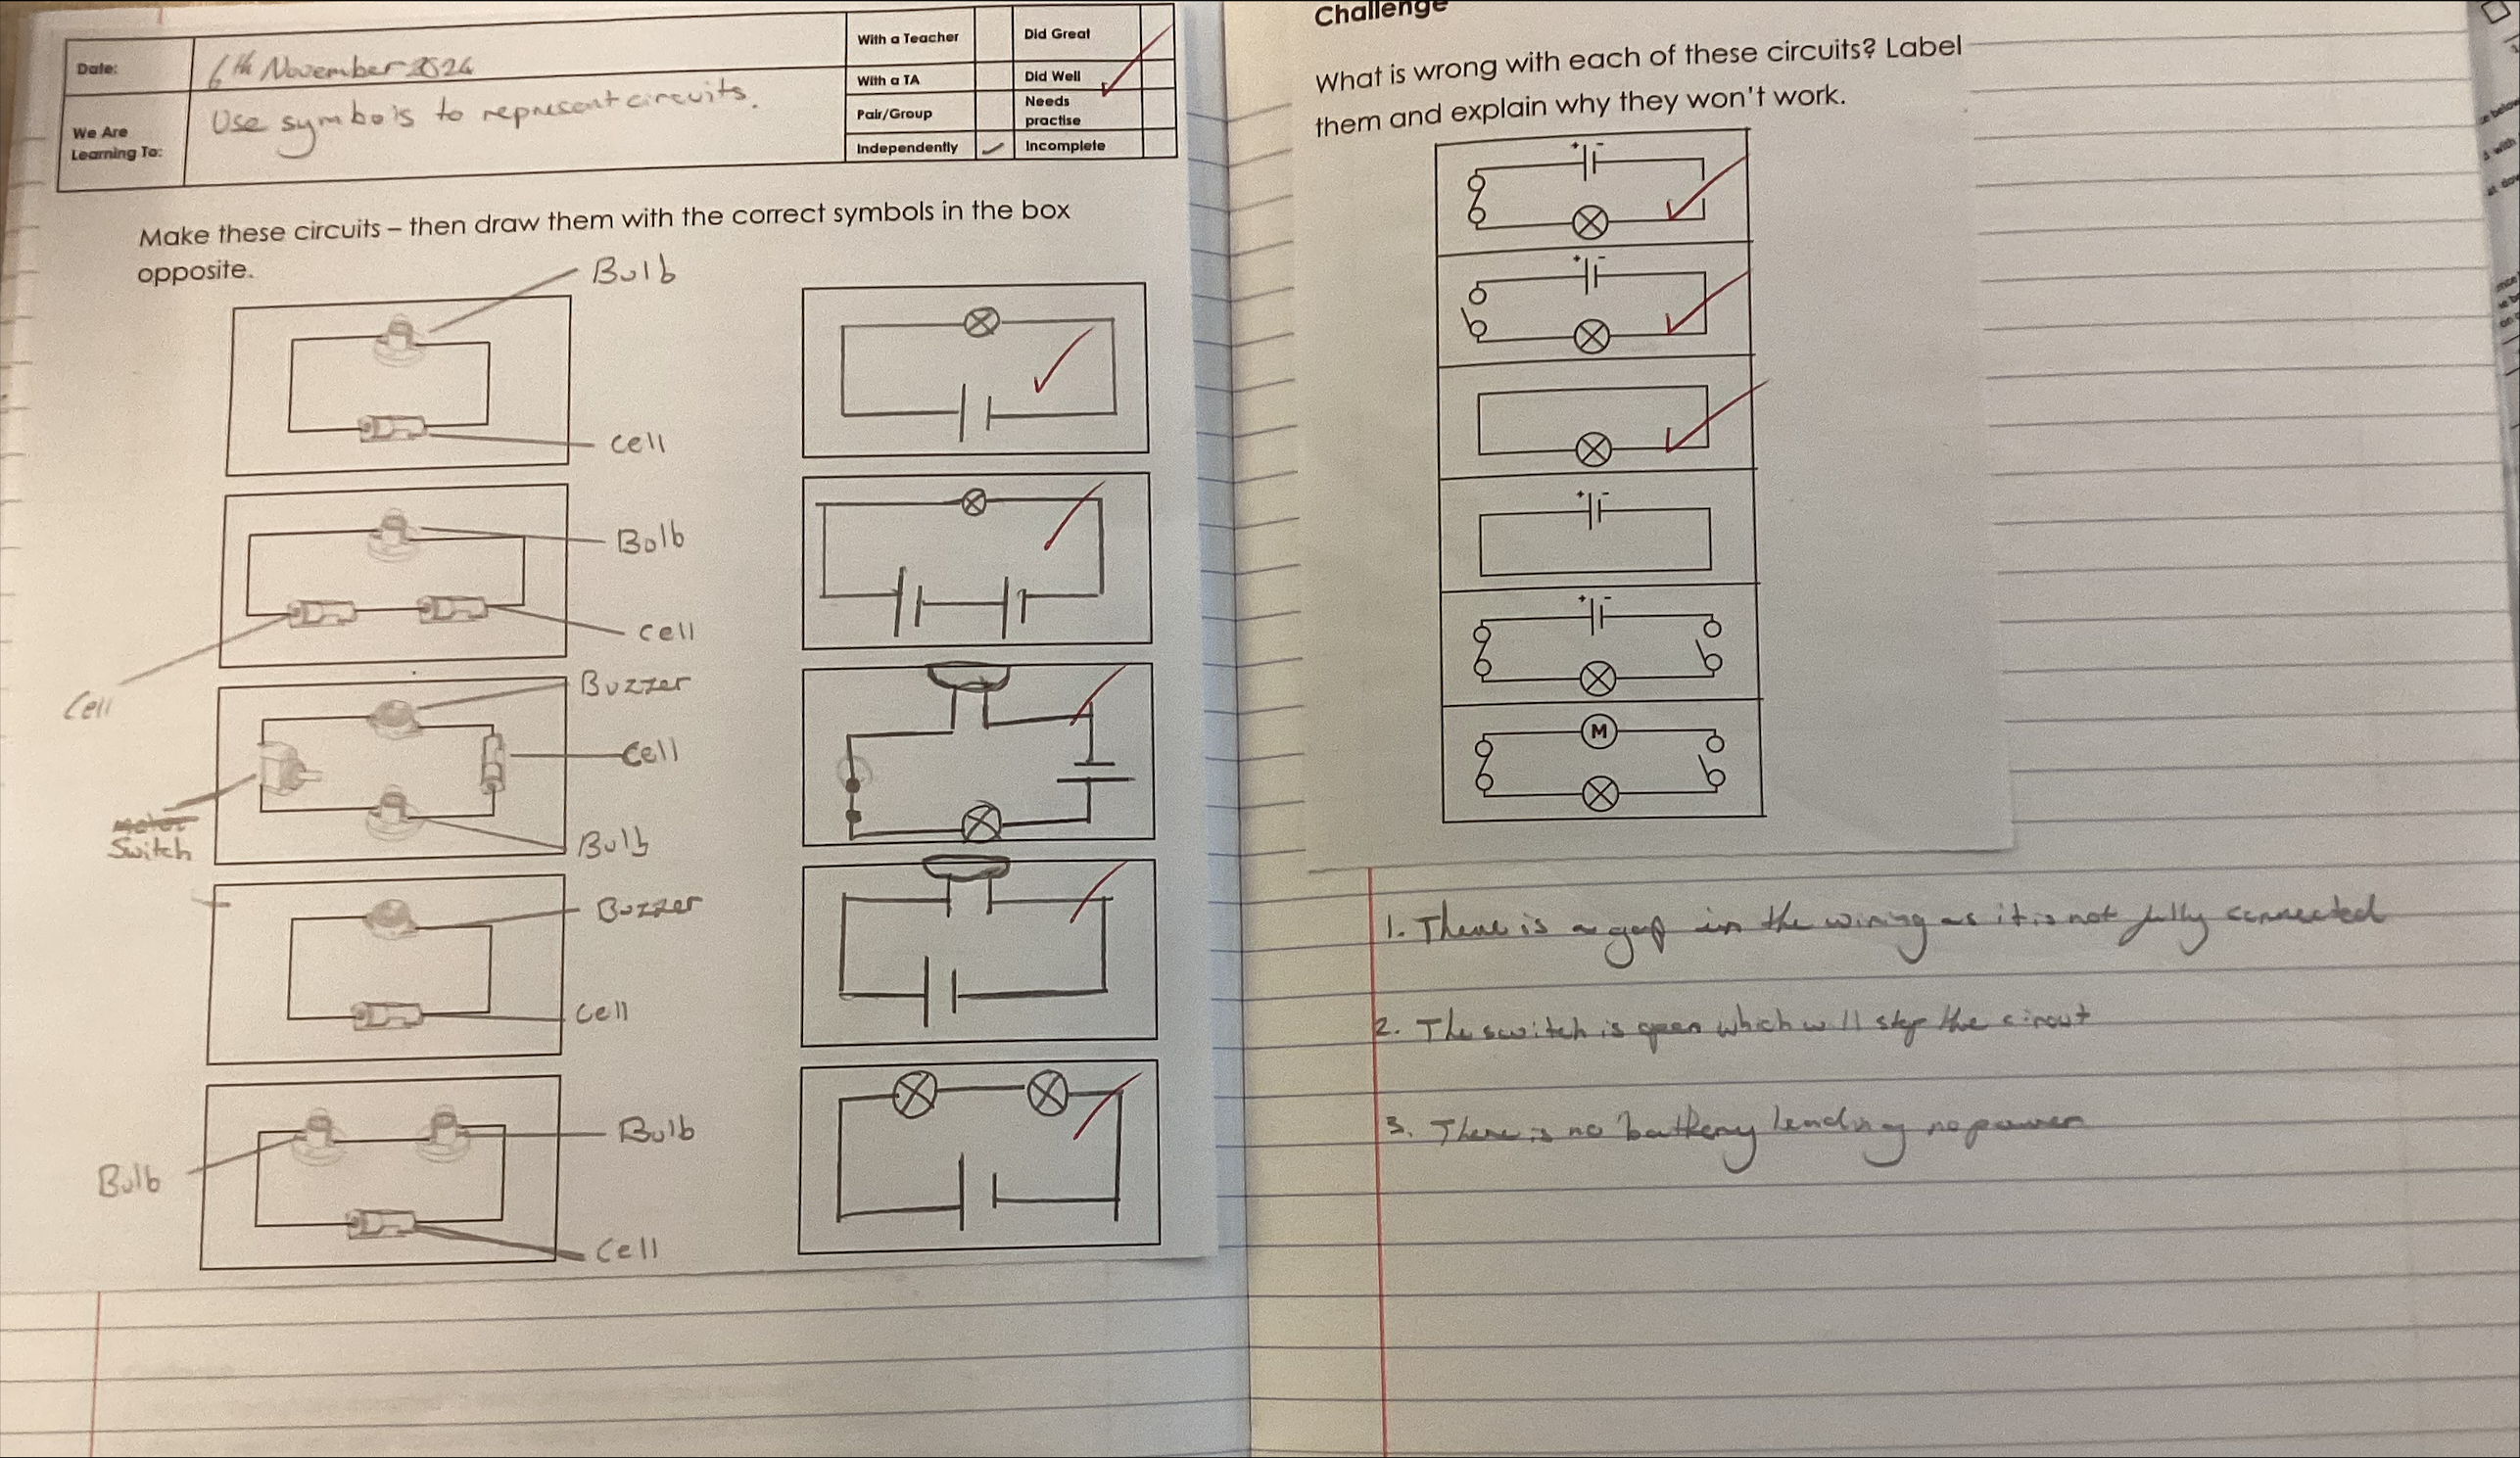 Date:
6th November 2024
We Are
Learning To:
Use symbols to represent circuits.
With a Teacher
Did Great
With a TA
Did Well
Pair/Group
Needs
practise
Independently
Incomplete
Make these circuits – then draw them with the correct symbols in the box
opposite.
Bulb
Cell
Bolb
Cell
Cell
Buzzer
Cell
Switch
Bulb
Buzzer
Cell
Bulb
Bulb
Cell
Challenge
What is wrong with each of these circuits? Label
them and explain why they won't work.
+ -
+ -
+ -
+ -
M
1. There is a gap in the wiring as it is not fully connected
2. The switch is open which will stop the circut
3. There is no battery leading no power